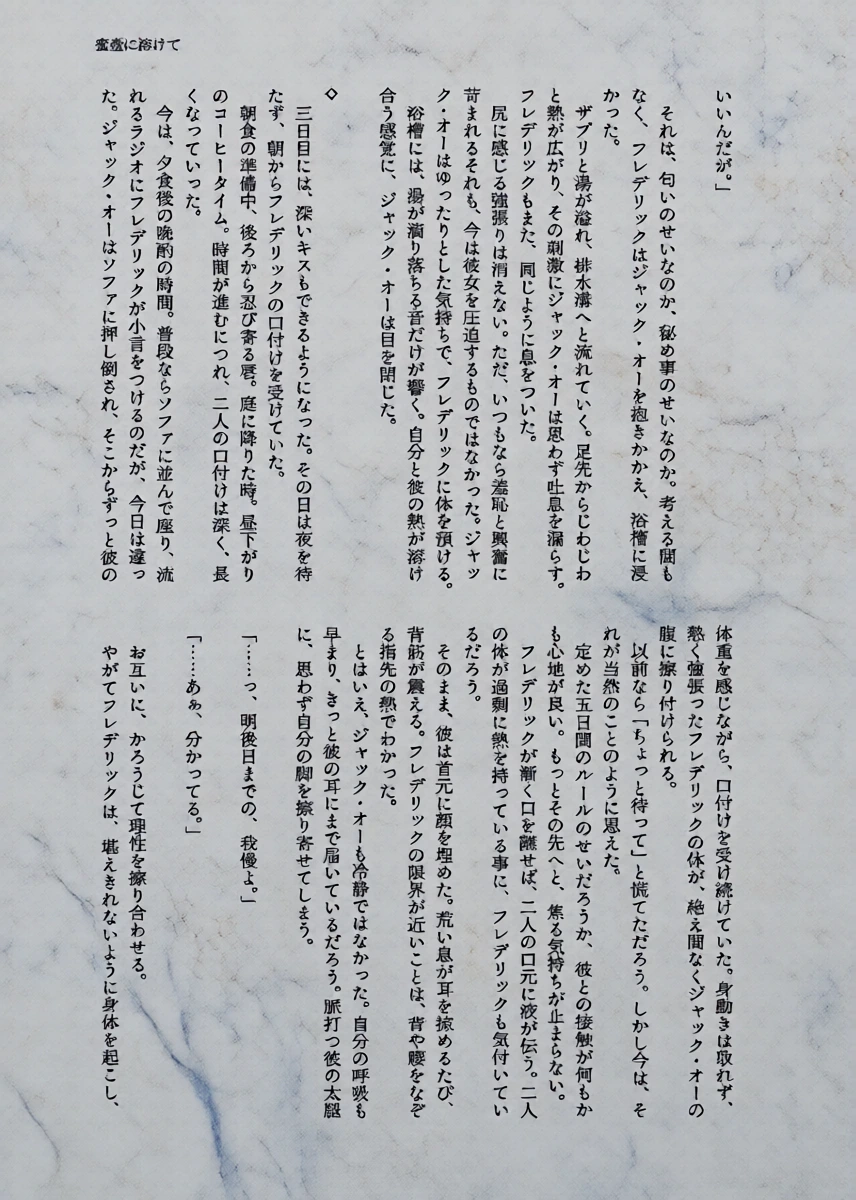 蜜壺に溶けて
いいんだが。」
それは、匂いのせいなのか、秘め事のせいなのか。考える間も
なく、フレデリックはジャック・オーを抱きかかえ、浴槽に浸
かった。
ザブリと湯が溢れ、排水溝へと流れていく。足先からじわじわ
と熱が広がり、その刺激にジャック・オーは思わず吐息を漏らす。
フレデリックもまた、同じように息をついた。
尻に感じる強張りは消えない。ただ、いつもなら羞恥と興奮に
苛まれるそれも、今は彼女を圧迫するものではなかった。ジャッ
ク・オーはゆったりとした気持ちで、フレデリックに体を預ける。
浴槽には、湯が滴り落ちる音だけが響く。自分と彼の熱が溶け
合う感覚に、ジャック・オーは目を閉じた。
◇
三日目には、深いキスもできるようになった。その日は夜を待
たず、朝からフレデリックの口付けを受けていた。
朝食の準備中、後ろから忍び寄る唇。庭に降りた時。昼下がり
のコーヒータイム。時間が進むにつれ、二人の口付けは深く、長
くなっていった。
今は、夕食後の晩酌の時間。普段ならソファに並んで座り、流
れるラジオにフレデリックが小言をつけるのだが、今日は違っ
た。ジャック・オーはソファに押し倒され、そこからずっと彼の
体重を感じながら、口付けを受け続けていた。身動きは取れず、
熱く強張ったフレデリックの体が、絶え間なくジャック・オーの
腹に擦り付けられる。
以前なら「ちょっと待って」と慌てただろう。しかし今は、そ
れが当然のことのように思えた。
定めた五日間のルールのせいだろうか、彼との接触が何もか
も心地が良い。もっとその先へと、焦る気持ちが止まらない。
フレデリックが漸く口を離せば、二人の口元に液が伝う。二人
の体が過剰に熱を持っている事に、フレデリックも気付いてい
るだろう。
そのまま、彼は首元に顔を埋めた。荒い息が耳を掠めるたび、
背筋が震える。フレデリックの限界が近いことは、背や腰をなぞ
る指先の熱でわかった。
とはいえ、ジャック・オーも冷静ではなかった。自分の呼吸も
早まり、きっと彼の耳にまで届いているだろう。脈打つ彼の太腿
に、思わず自分の脚を擦り寄せてしまう。
「……っ、明後日までの、我慢よ。」
「……あぁ、分かってる。」
お互いに、かろうじて理性を擦り合わせる。
やがてフレデリックは、堪えきれないように身体を起こし、